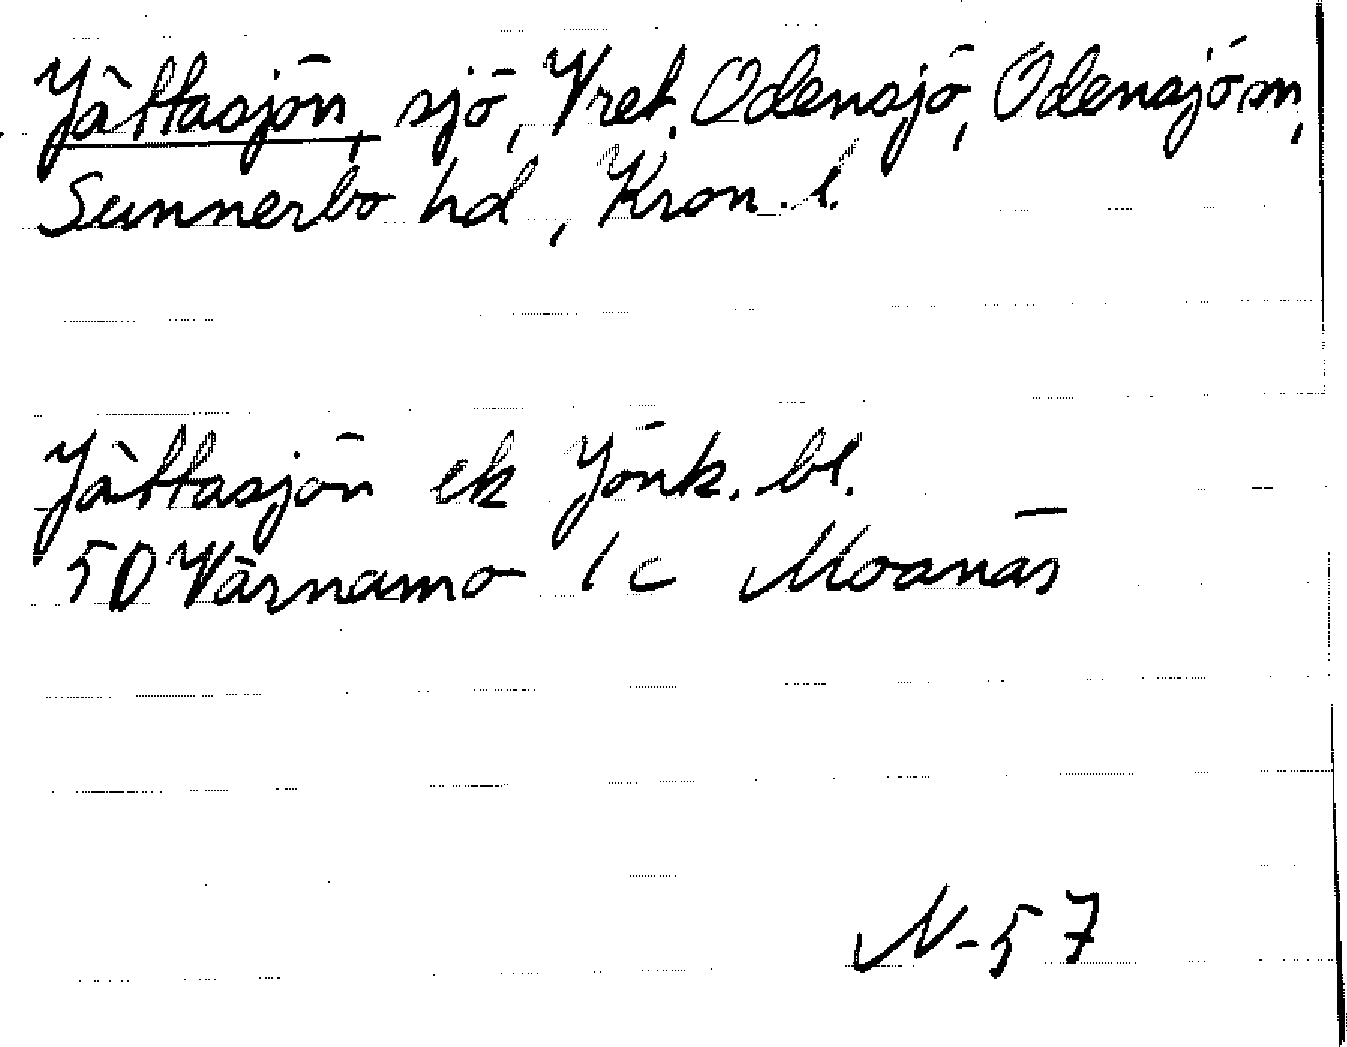 Jättasjön, sjö, Vret. Odensjö, Odensjö sn,
Sunnerbo hd, Kron. l.
Jättasjön ek Jönk. bl.
5D Värnamo 1c Moanäs
N-57